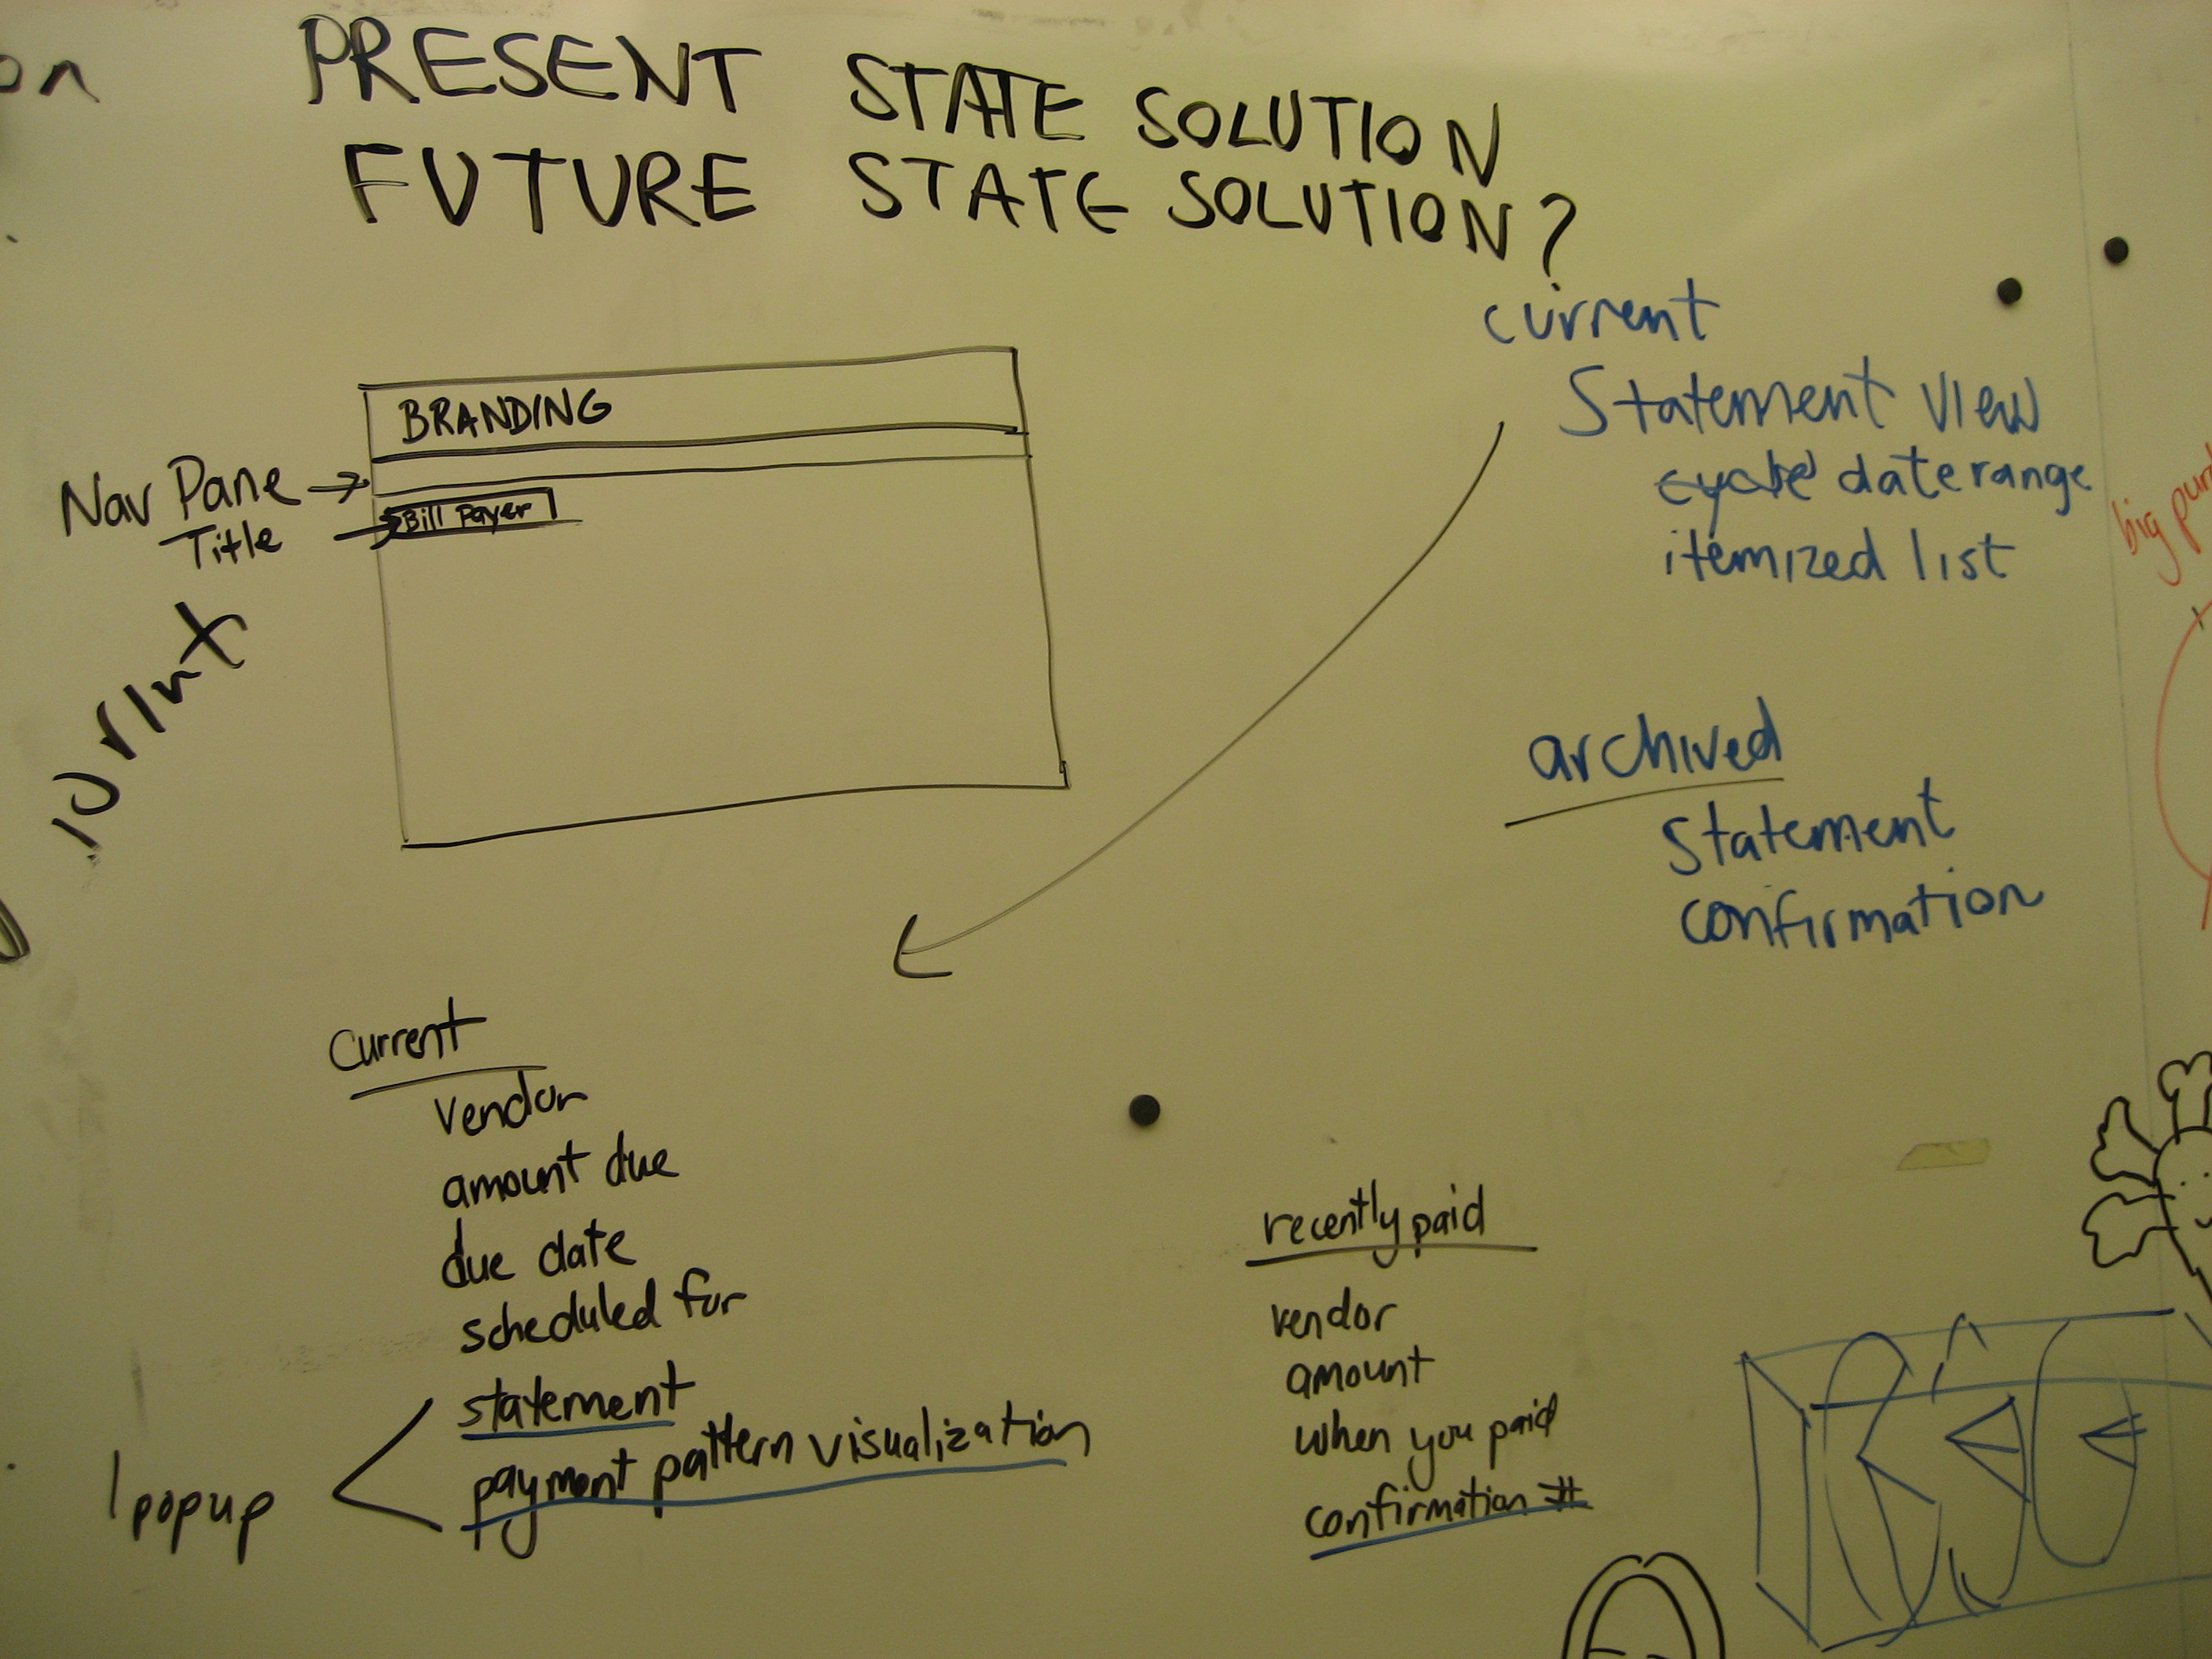 on
PRESENT STATE SOLUTION
FUTURE STATE SOLUTION?
BRANDING
Nav Pane
Title
Bill Payer
current
Statement view
cycle date range
itemized list
big
archived
statement
confirmation
Current
vendor
amount due
due date
scheduled for
statement
payment pattern visualization
popup
recently paid
vendor
amount
when you paid
confirmation #